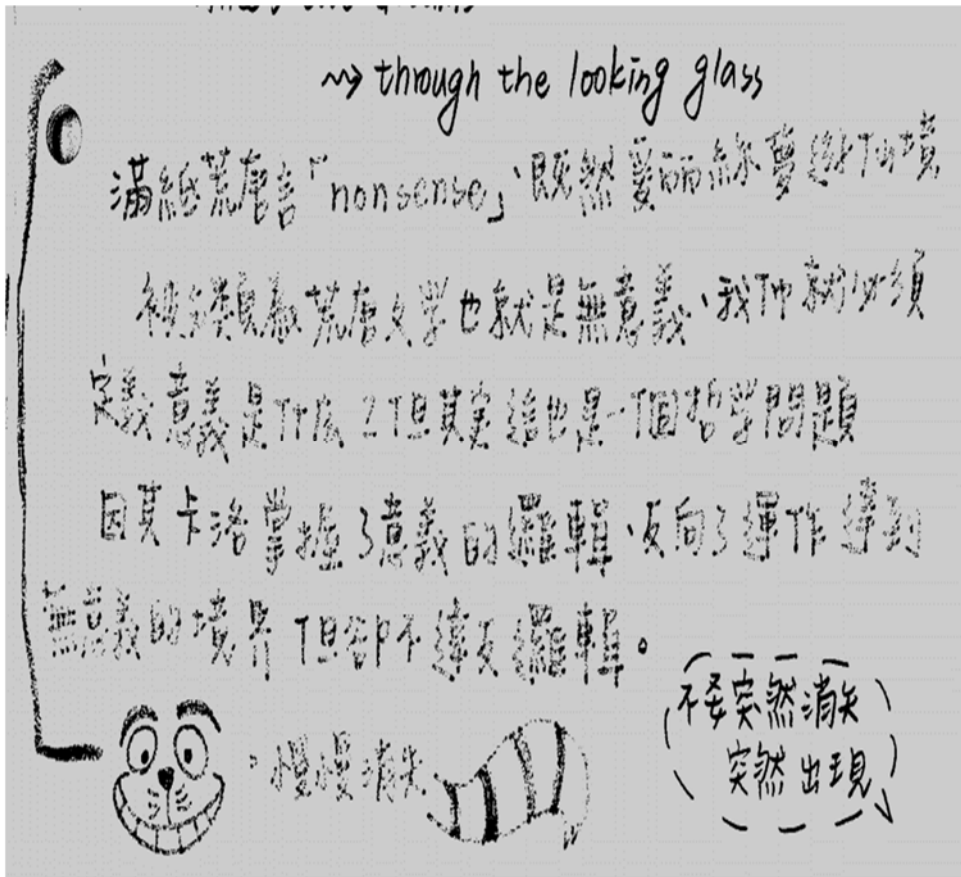 ~> through the looking glass
滿紙荒唐言「nonsense」、既然愛麗絲夢遊仙境
被分類為荒唐文學也就是無意義、我們就必須
定義意義是什么？但其实這也是一個哲学問題
因其卡洛掌握了意義的邏輯、反向了運作達到
無意義的境界但卻不違反邏輯。
：慢慢消失
不要突然消失
突然出現